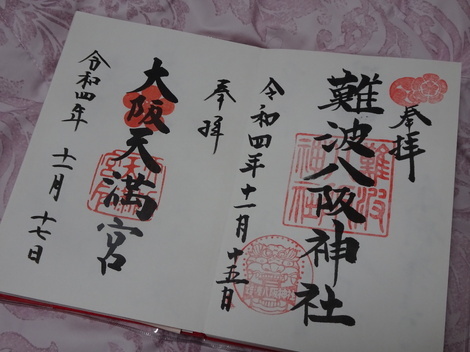 奉拝
難波八阪神社
難波
神社
令和四年十一月十五日
奉拝
大阪天満宮
令和四年 十一月 十七日